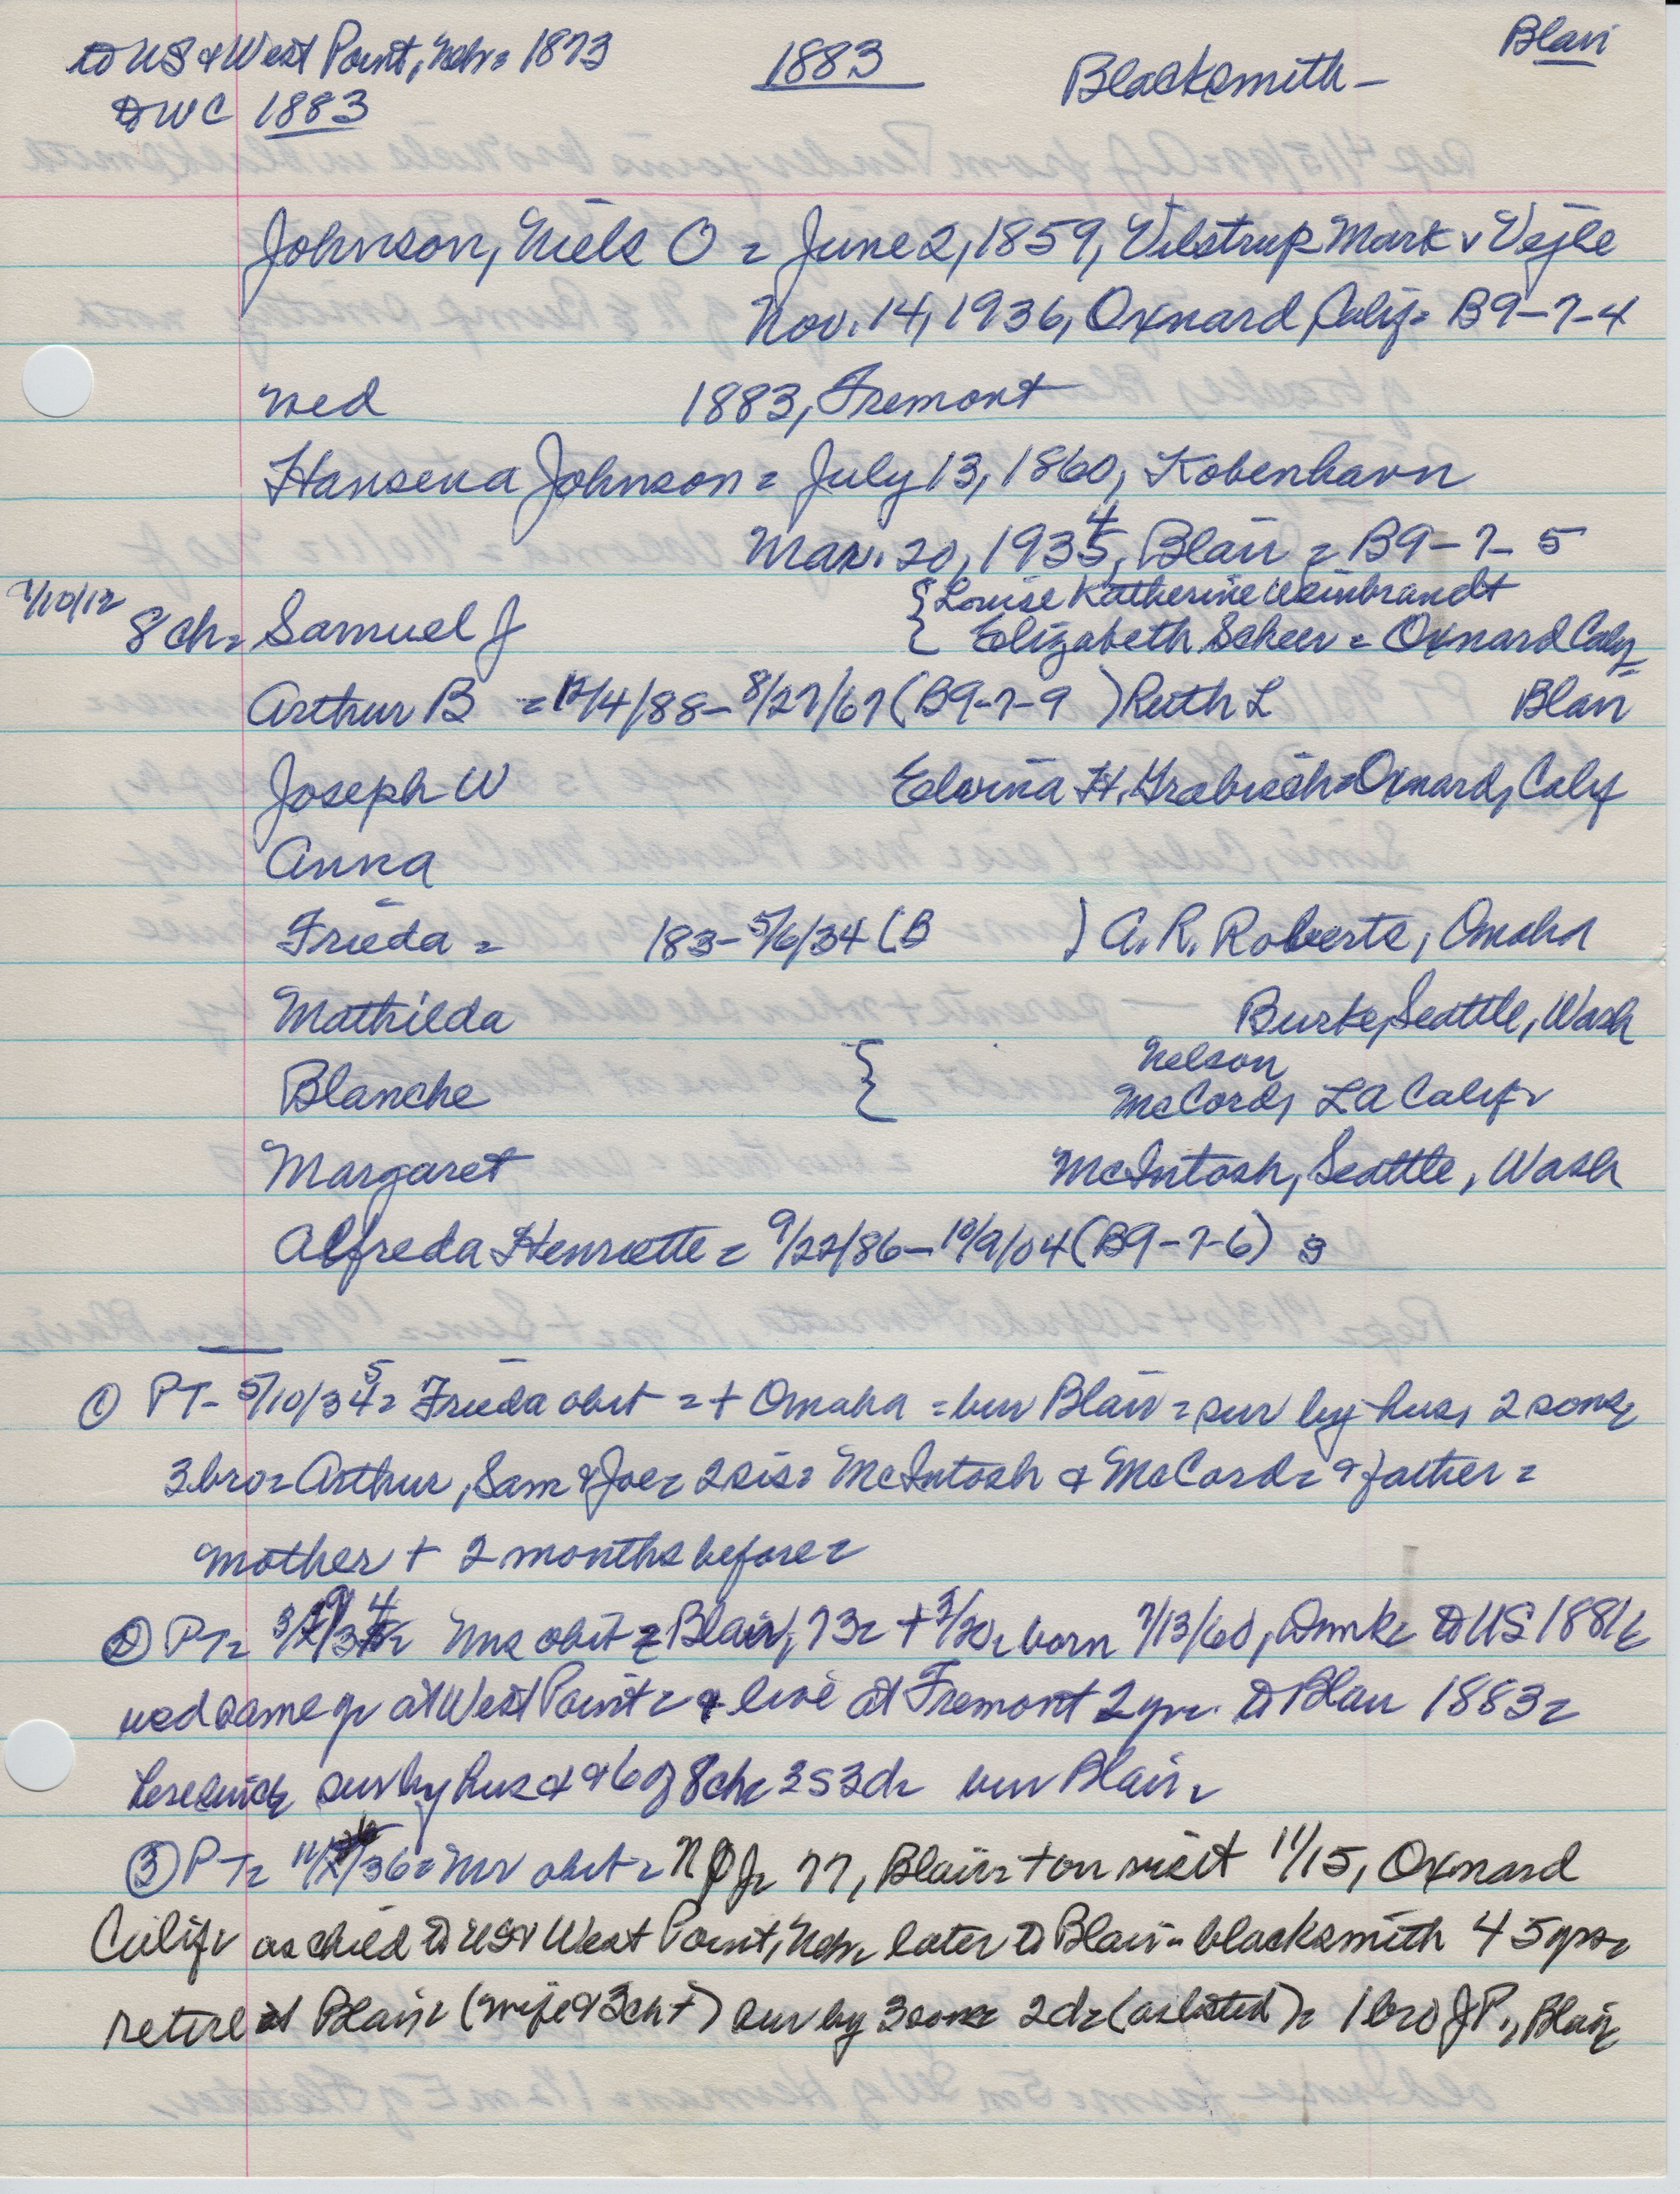 to US & West Point, Nebr = 1873
1883
Blacksmith -
Blair
to WC 1883
Johnson, Niels O = June 2, 1859, Vilstrup Mark v Vejle
Nov. 14, 1936, Oxnard, Calif = B9-7-4
wed 1883, Fremont
Hansena Johnson = July 13, 1860, Kobenhavn
Mar. 20, 1934, Blair = B9-7-5
{ Louise Katherine Weinbrandt
/10/12 8 ch = Samuel J { Elizabeth Scheer = Oxnard Calif =
Arthur B = 12/4/88 - 8/27/67 (B9-7-9 ) Ruth L Blair
Joseph W Elvina H. = Oxnard, Calif
Anna
Frieda = 183- 5/6/34 (B ) A. R. Roberts, Omaha
Mathilda Burke, Seattle, Wash
Nelson
Blanche { McCord, LA Calif
Margaret McIntosh, Seattle, Wash
Alfreda Henriette = 9/22/86 - 10/9/04 (B9-7-6) s
① PT - 5/10/34 = Frieda obit = + Omaha = bur Blair = sur by hus, 2 sons
3 bro = Arthur, Sam & Joe = 2 sis = McIntosh & McCord = & father =
mother + 2 months before =
② PT = Mrs obit = Blair, 73 = + 3/20 = born 7/13/60, Dmk = to US 1881 =
wed same yr at West Point = & live at Fremont 2 yr = to Blair 1883 =
here since sur by hus & 6 of 8 ch = 3s 3d = bur Blair =
③ PT = Mr obit = N O J = 77, Blair = + on visit 11/15, Oxnard
Calif as child to US & West Point, Nebr = later to Blair = blacksmith 45 yrs =
retire at Blair = (wife & 3 ch +) sur by 3 sons 2d = (as listed) = 1 bro J P., Blair